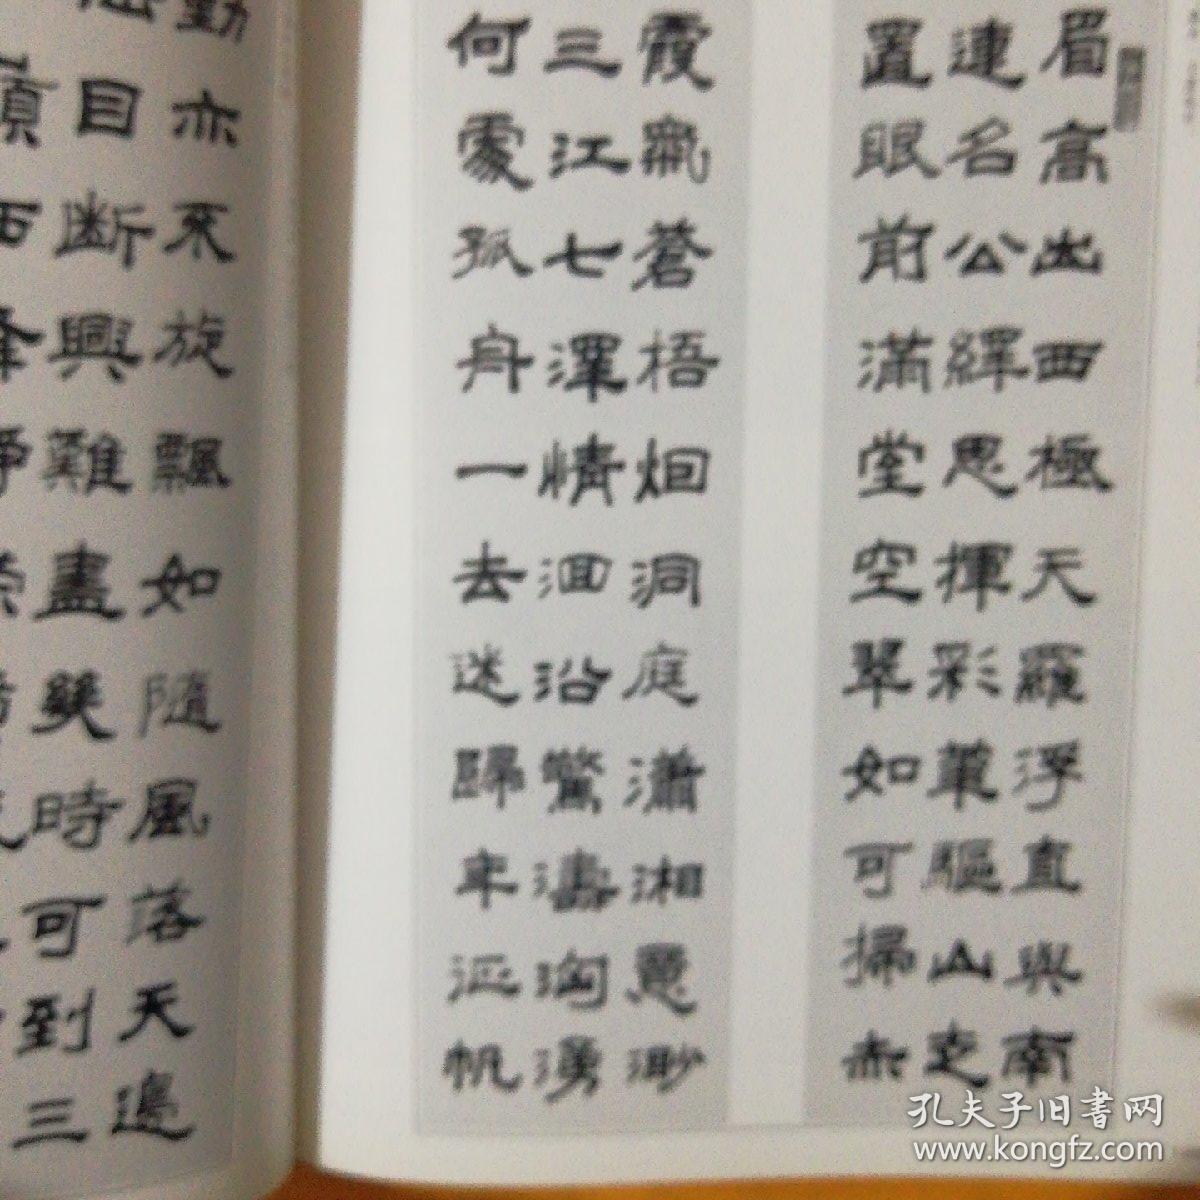 眉高出西極天羅浮直與南
連名公繹思揮彩筆驅山走
置眼前滿堂空翠如可掃赤
霞氣蒼梧烟洞庭瀟湘意渺
三江七澤情洄沿驚濤洶湧
何處孤舟一去迷歸年征帆
動亦不旋飄如隨風落天邊
目斷興難盡幾時可到三
西峰
孔夫子旧书网
www.kongfz.com